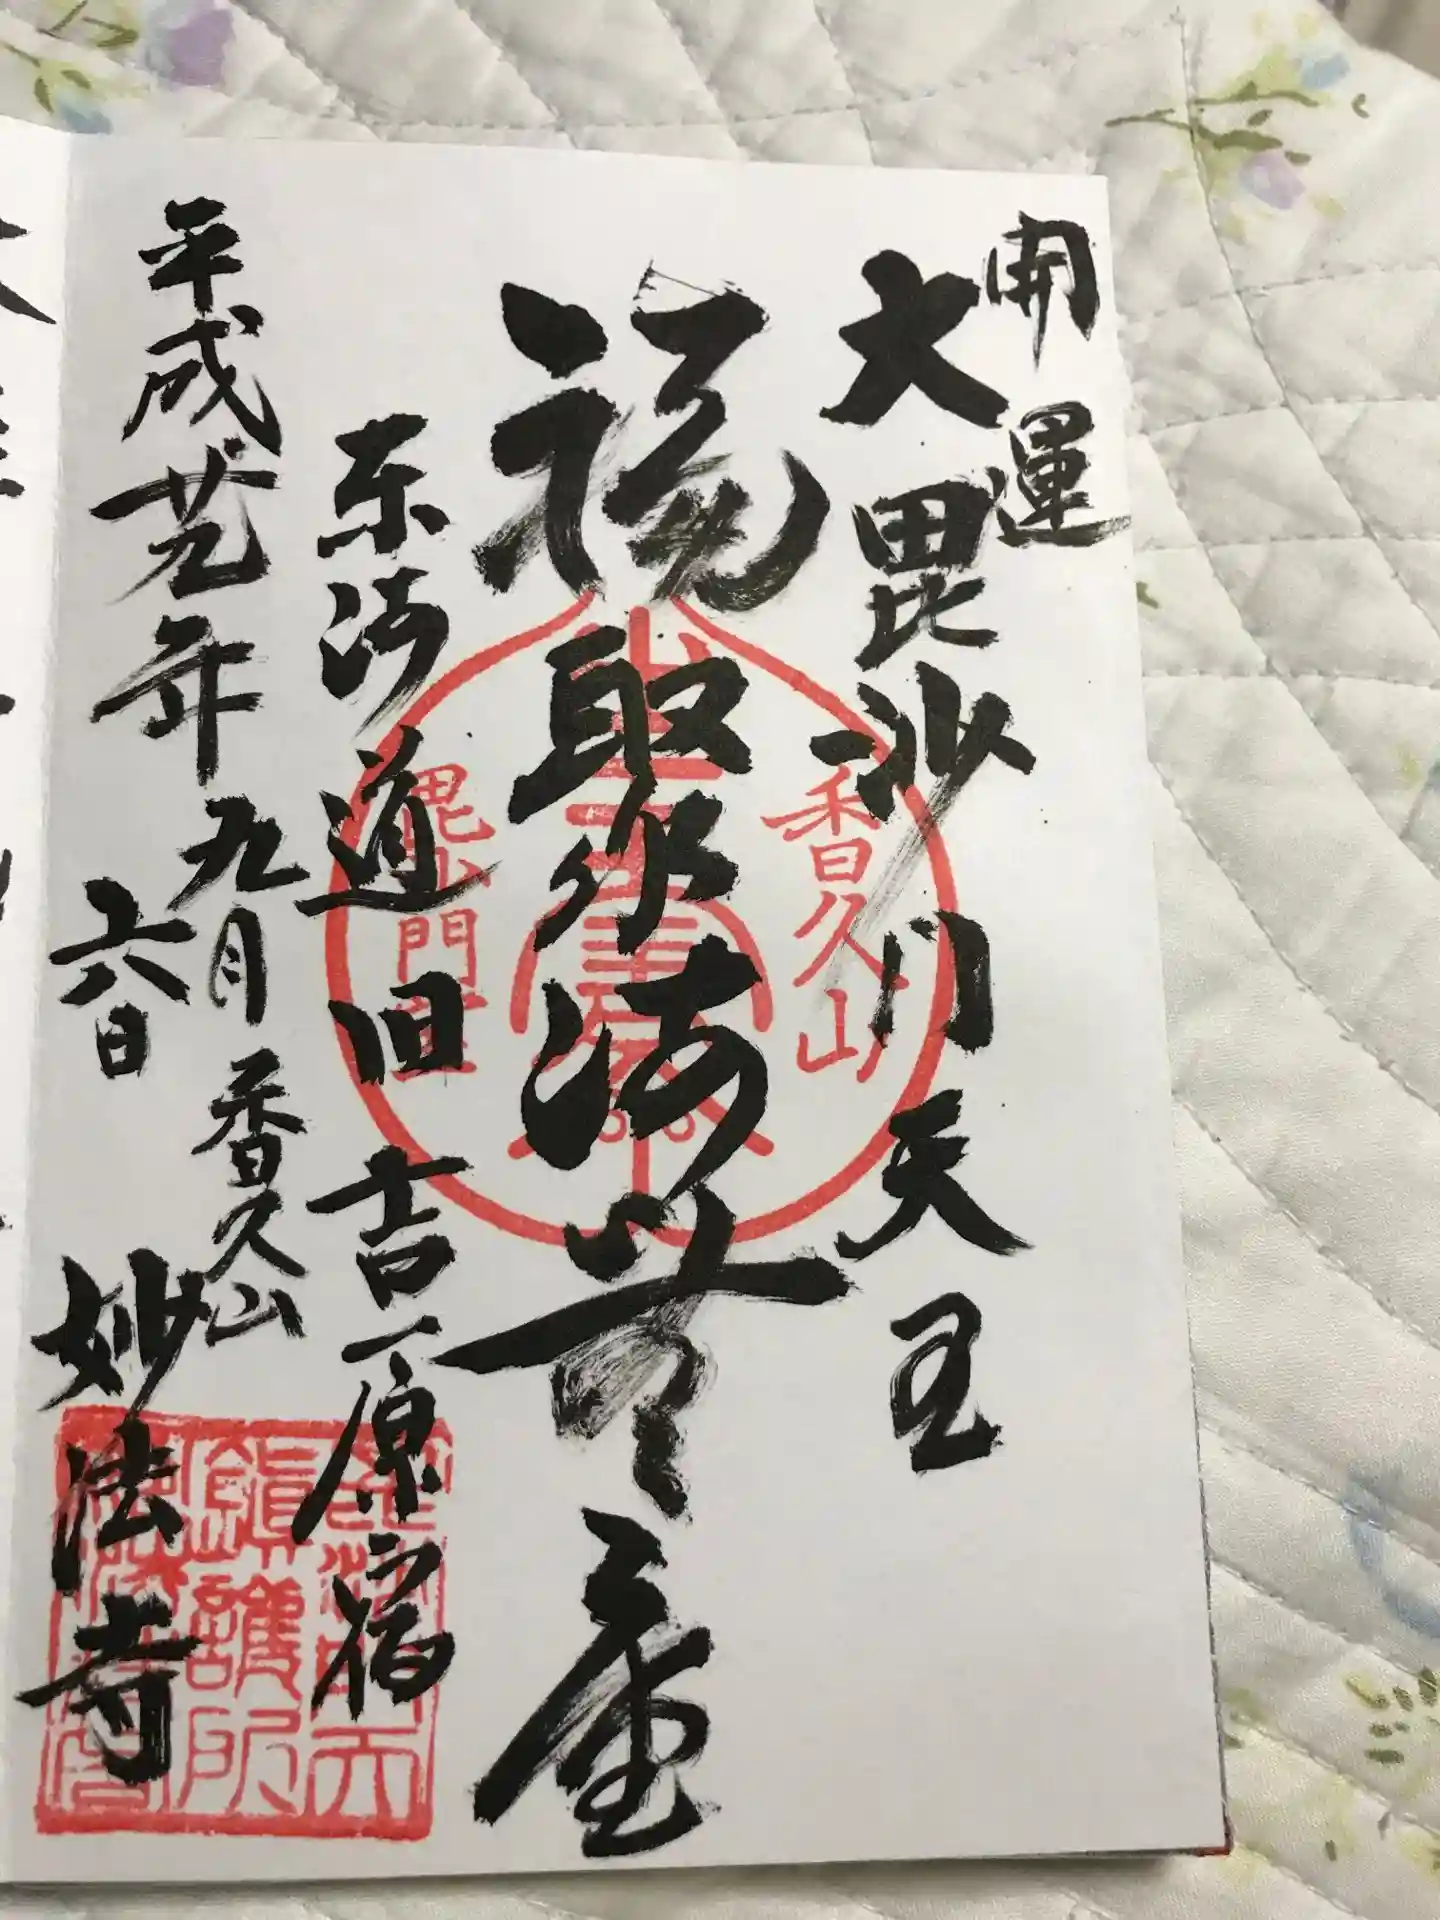 開運
大毘沙門天王
福聚海無量
東海道旧吉原宿
香久山
妙法寺
平成廿九年九月
六日
香久山
毘沙門堂
鎮護所